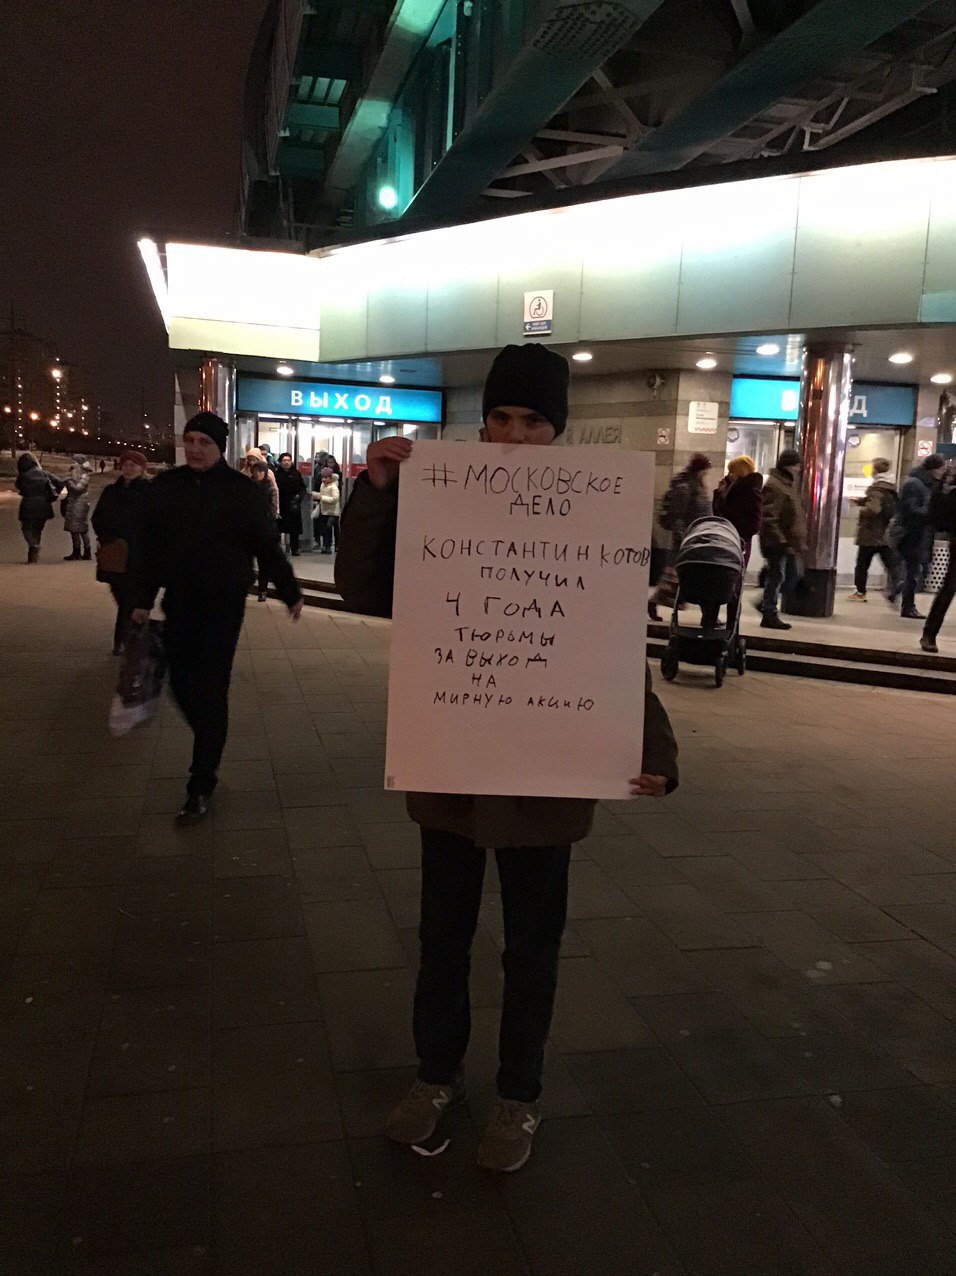 ВЫХОД
АЛЛЕЯ
#МОСКОВСКОЕ
ДЕЛО
КОНСТАНТИН КОТОВ
ПОЛУЧИЛ
4 ГОДА
ТЮРЬМЫ
ЗА ВЫХОД
НА
МИРНУЮ АКЦИЮ
N
N